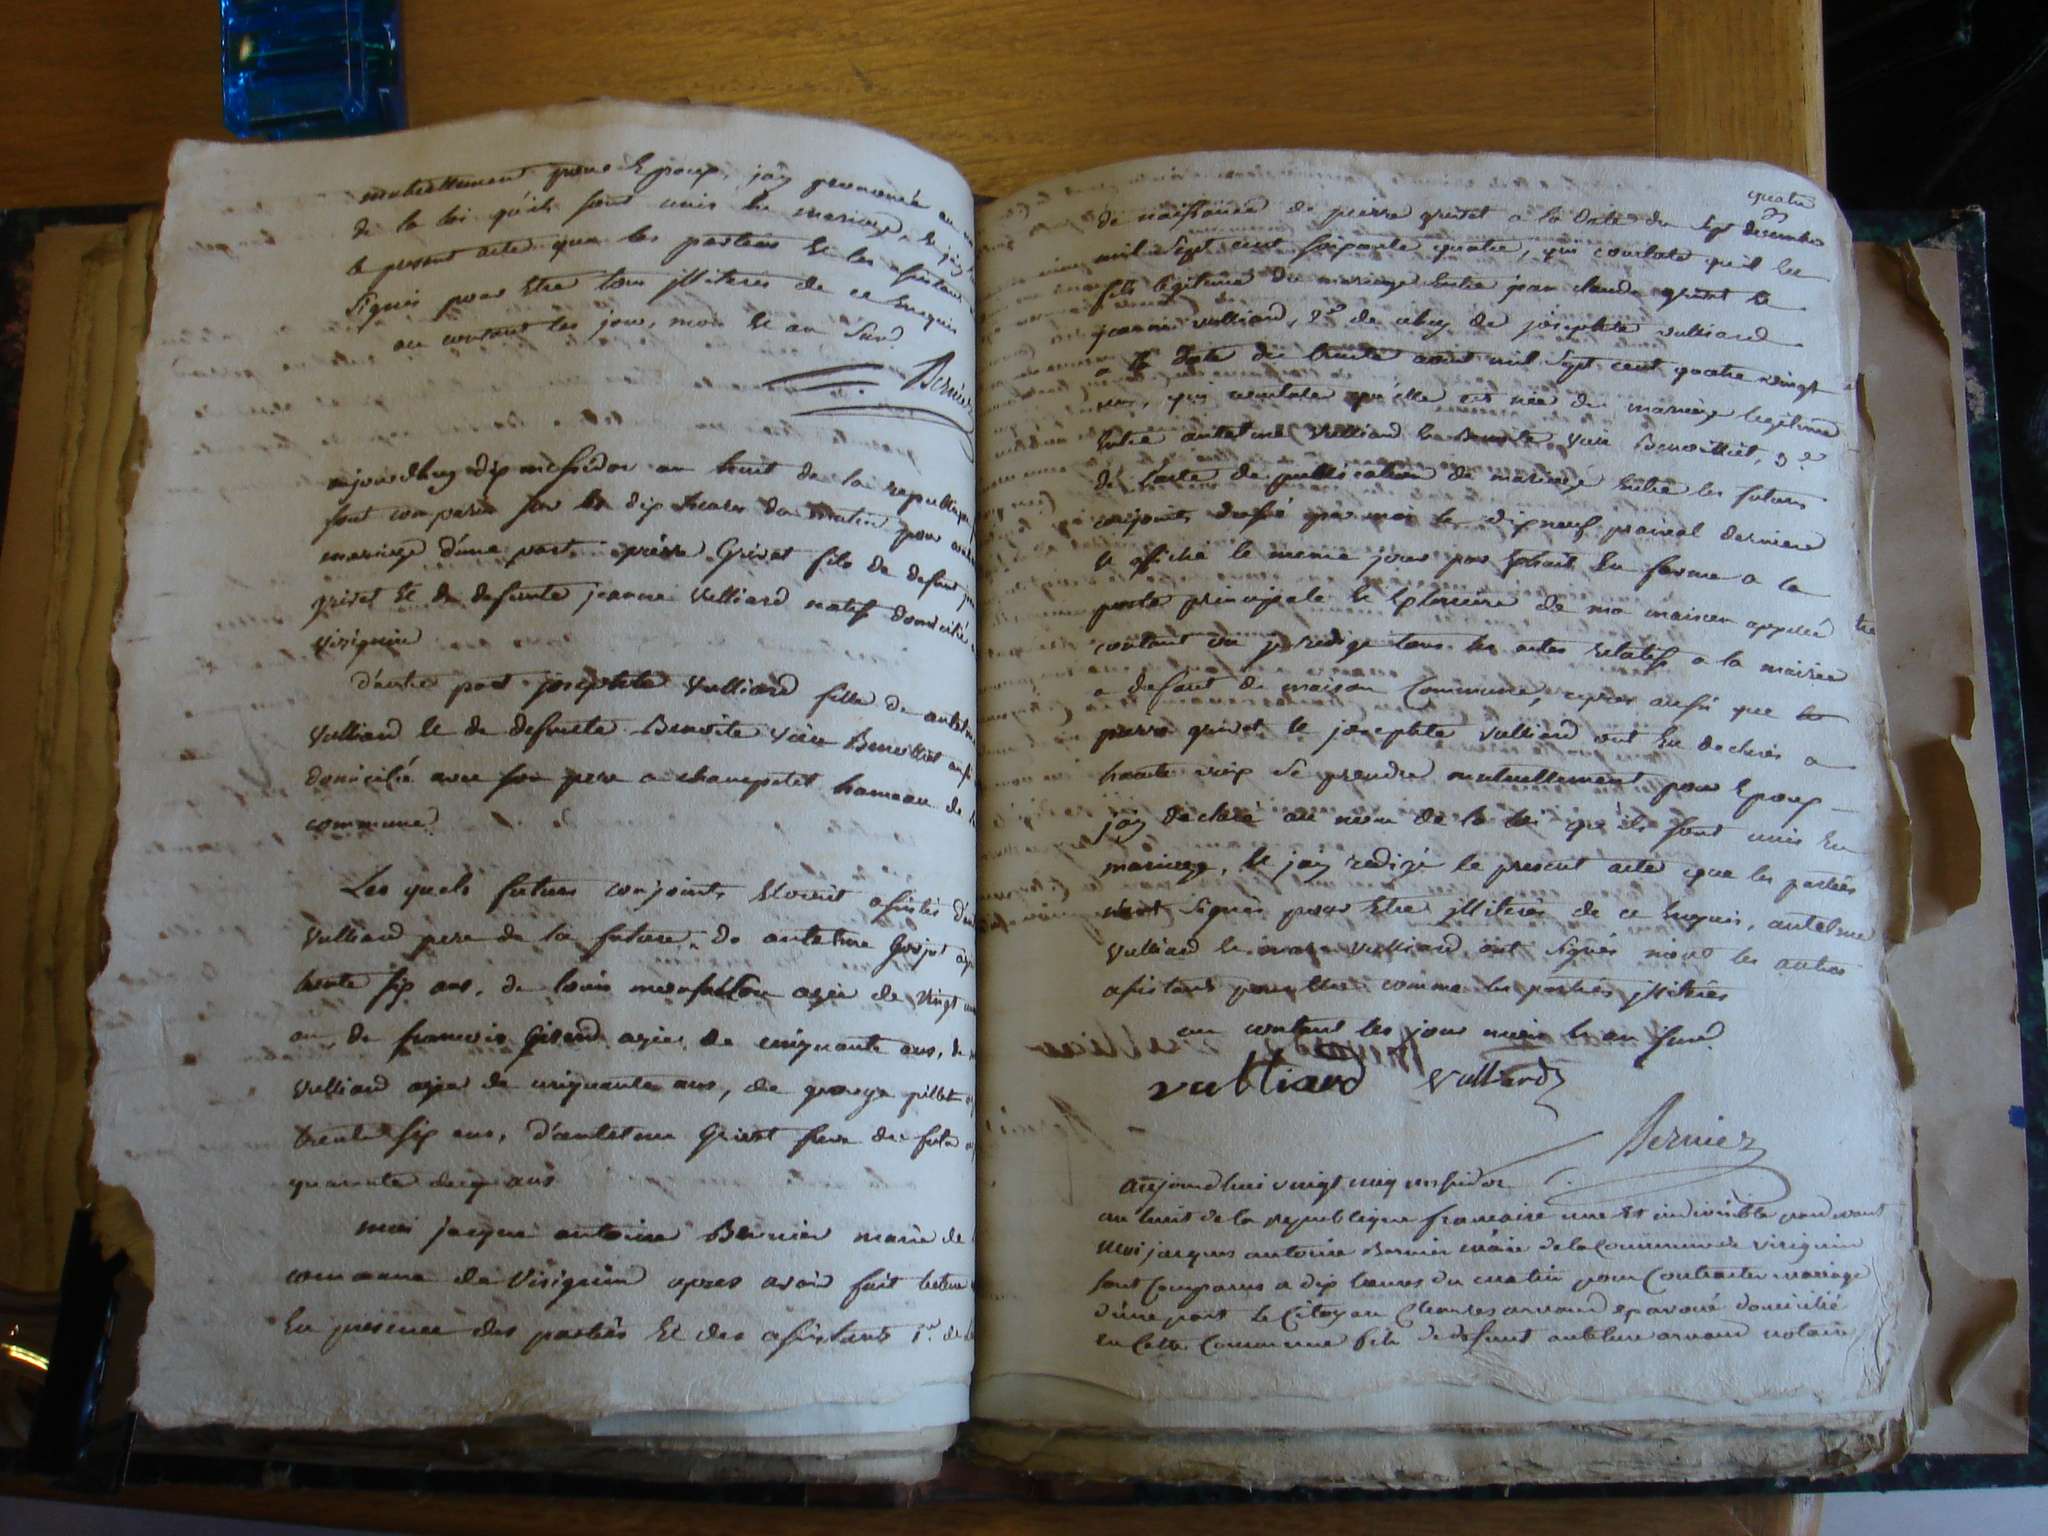 mutuellement pour Epoux, jay prononcé au
de la loi qu'ils sont unis En mariage, Et jay
le present acte que les parties Et les assistans
signés pour Etre tous illiterés de ce Enquis
au contant les jour, mois Et an Susd.
Bernier
aujourdhuy dix messidor an huit de la republique
sont comparu sur les dix heures du matin pour
mariage d'une part pierre Grivet fils de defunt
grivet Et de defunte jeanne Vulliard natif domicilié
virignin
d'autre part josephte Vulliard fille de antelme
Vulliard Et de defunte Benoite Benoillet
domicilié avec son pere a champetet hameau de
commune
Les quels futurs conjoints Etoient assistés
Vulliard pere de la future, de antelme
trente six ans, de louis agée de Vingt
an, de francois agée de cinquante ans, de
Vulliard agée de cinquante ans, de george pillet
trente six ans, d'antelme Grivet frere du futur
quarante ans
moi jacque antoine Bernier maire de
commune de Virignin apres avoir fait lecture
En presence des parties Et des assistants 1.° de
quatre
de naissance de pierre grivet a la Date du Sept decembre
mil Sept cent soixante quatre, qui constate qu'il Est
fils legitime du mariage Entre jean claude grivet Et
jeanne Vulliard, 2.° de celuy de josephte vulliard
a la Date du trente aout mil Sept cent quatre vingt
un, qui constate qu'elle est née du mariage legitime
Entre antelme Vulliard Et Benoite Benoillet, 3.°
de l'acte de publication de mariage Entre les futurs
conjoints dressé par moi le dix neuf prairial derniere
Et affiché le meme jour par Extrait En forme a la
porte principale Et Exterieure de ma maison appellée
contant ou je redige tous les actes relatifs a la mairie
a defaut de maison Commune, apres aussi que
pierre grivet Et josephte Vulliard ont Eu declarés a
haute voix se prendre mutuellement pour Epoux
jay declaré au nom de la loi qu'ils sont unis En
mariage, Et jay redigé le present acte que les parties
n'ont signés pour Etre illiterés de ce Enquis, antelme
Vulliard Et Vulliard, ont signés nont les autres
assistants pour Etre comme les parties illiterés
au contant les jour mois Et an susd.
vulliard Vulliard
Bernier
Aujourd hui vingt cinq messidor
an huit de la republique francaise une Et indivisible pardevant
Moi jacques antoine Bernier maire de la Commune de Virignin
sont Comparus a dix heures du matin pour Contracter mariage
d'une part Le Citoyen Charles arnaud domicilié
en Cette Commune fils de defunt antelme arnaud notaire